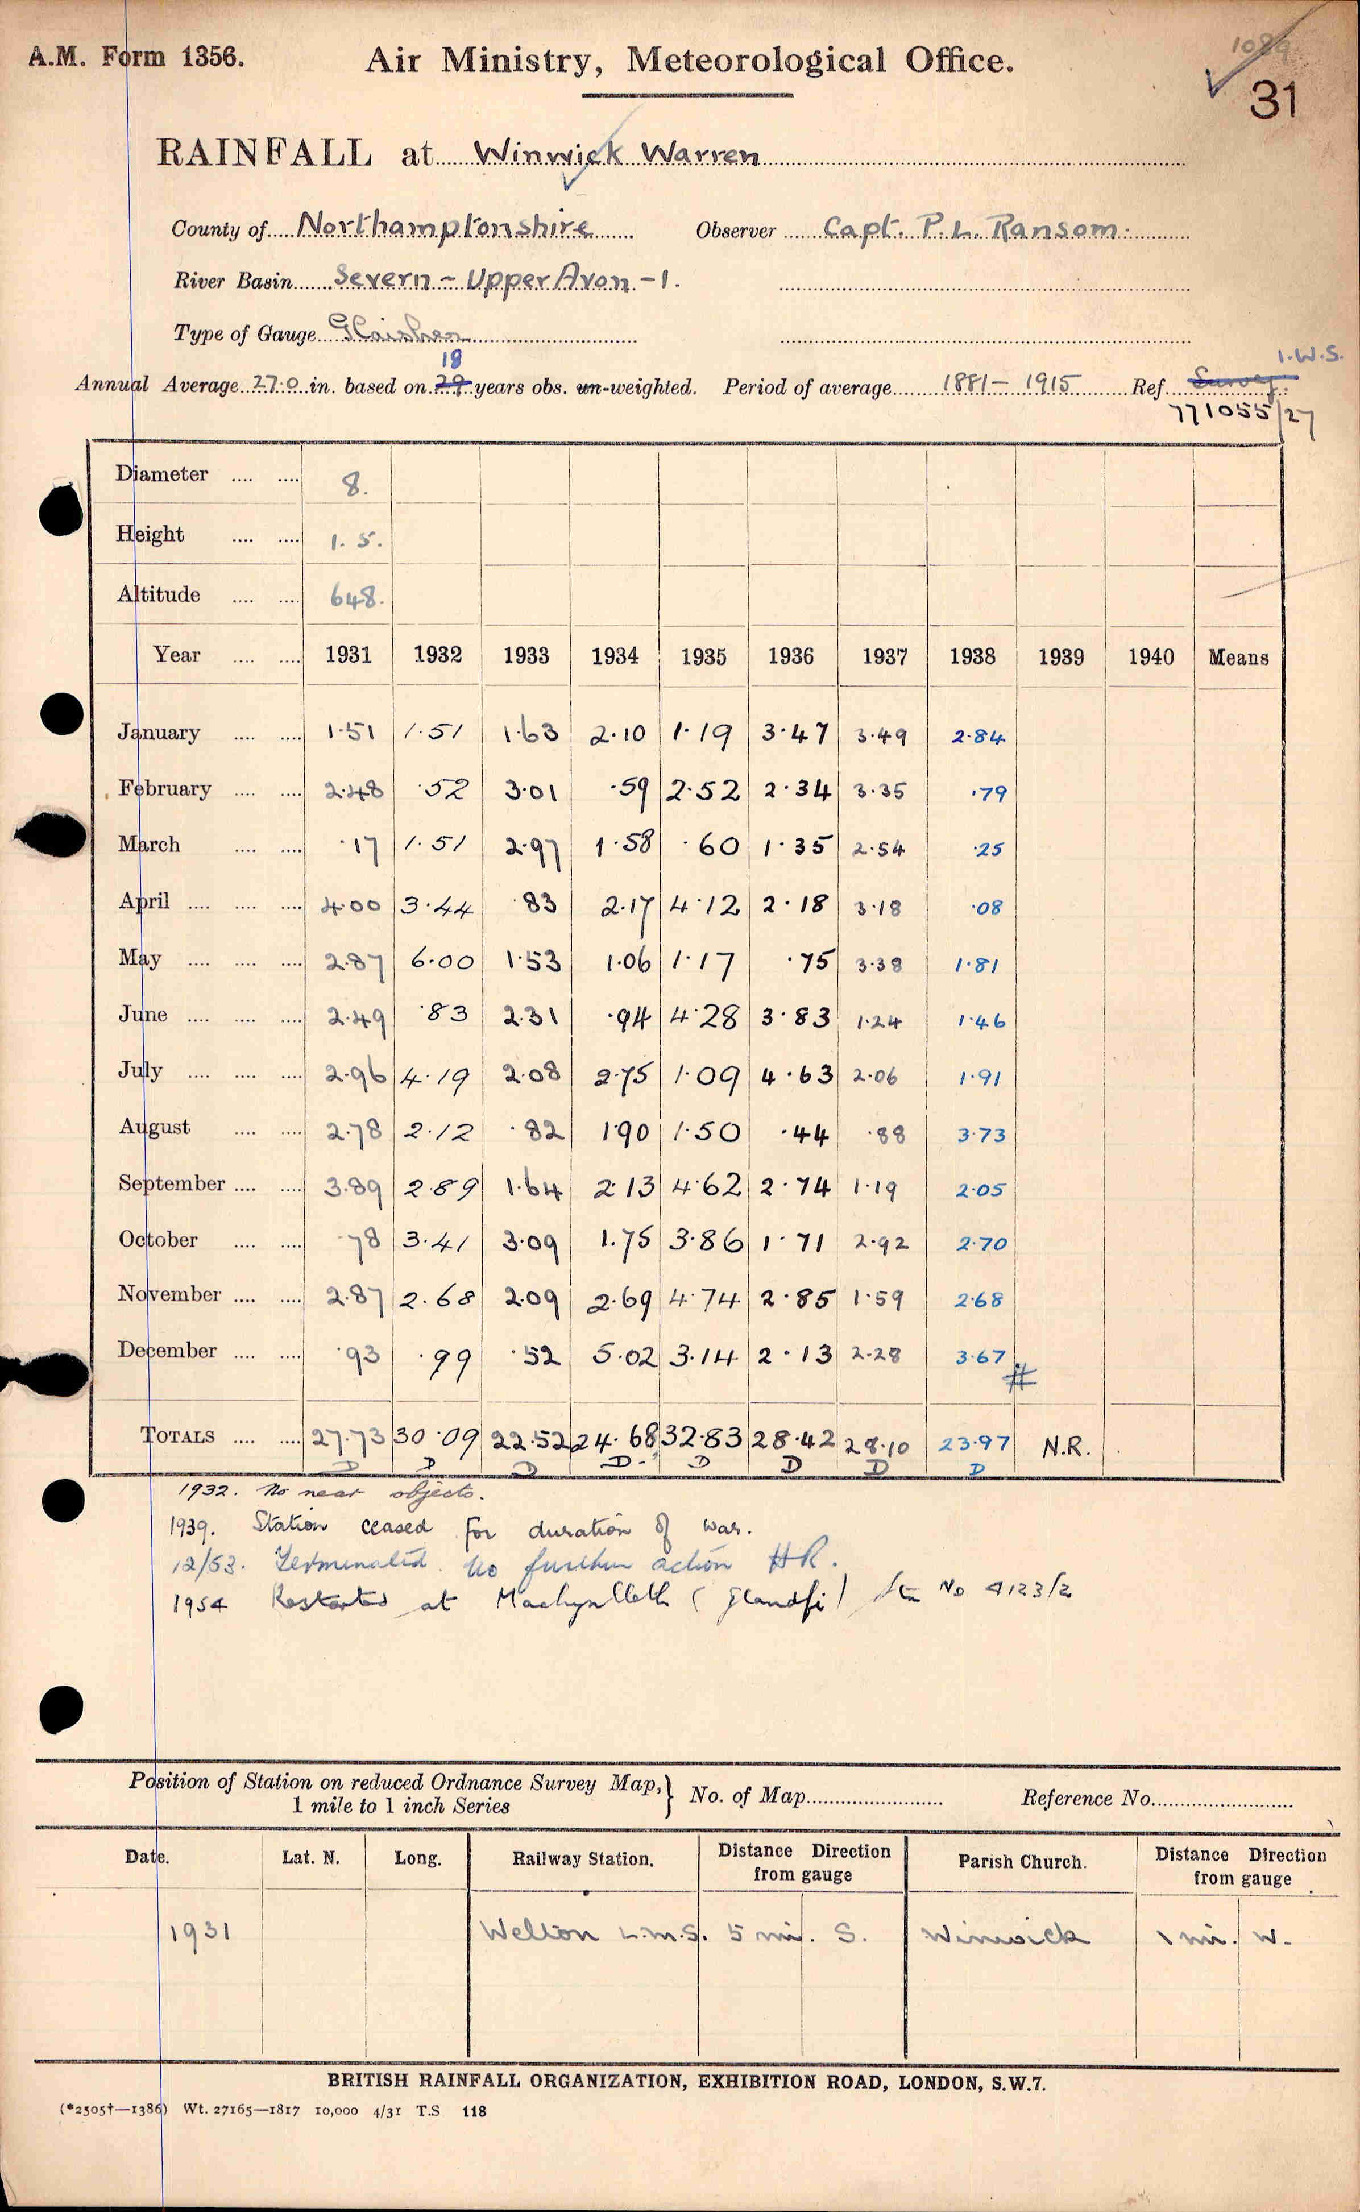 A.M. Form 1356.
Air Ministry, Meteorological Office.
1089
31
RAINFALL at Winwick Warren
County of Northamptonshire Observer Capt. P. L. Ransom.
River Basin Severn - Upper Avon - 1.
Type of Gauge Glaisher
18
I.W.S.
Annual Average 27.0 in. based on 29 years obs. un-weighted. Period of average 1881 - 1915 Ref. Survey.
771055/27
Diameter 8.
Height 1. 5.
Altitude 648.
Year 1931 1932 1933 1934 1935 1936 1937 1938 1939 1940 Means
January 1.51 1.51 1.63 2.10 1.19 3.47 3.49 2.84
February 2.48 .52 3.01 .59 2.52 2.34 3.35 .79
March .17 1.51 2.97 1.58 .60 1.35 2.54 .25
April 4.00 3.44 .83 2.17 4.12 2.18 3.18 .08
May 2.87 6.00 1.53 1.06 1.17 .75 3.38 1.81
June 2.49 .83 2.31 .94 4.28 3.83 1.24 1.46
July 2.96 4.19 2.08 2.75 1.09 4.63 2.06 1.91
August 2.78 2.12 .82 1.90 1.50 .44 .88 3.73
September 3.89 2.89 1.64 2.13 4.62 2.74 1.19 2.05
October .78 3.41 3.09 1.75 3.86 1.71 2.92 2.70
November 2.87 2.68 2.09 2.69 4.74 2.85 1.59 2.68
December .93 .99 .52 5.02 3.14 2.13 2.28 3.67
#
TOTALS 27.73 30.09 22.52 24.68 32.83 28.42 28.10 23.97 N.R.
D D D D D D D D
1932. No near objects.
1939. Station ceased for duration of war.
12/53. Terminated. No further action HR.
1954 Restarted at Machynlleth (Glandyfi) Stn No 4123/2
Position of Station on reduced Ordnance Survey Map, } No. of Map Reference No.
1 mile to 1 inch Series
Date. Lat. N. Long. Railway Station. Distance Direction from gauge Parish Church. Distance Direction from gauge
1931 Welton L.M.S. 5 mi. S. Winwick 1 mi. W.
BRITISH RAINFALL ORGANIZATION, EXHIBITION ROAD, LONDON, S.W.7.
(*2505†—1386) Wt. 27165—1817 10,000 4/31 T.S 118